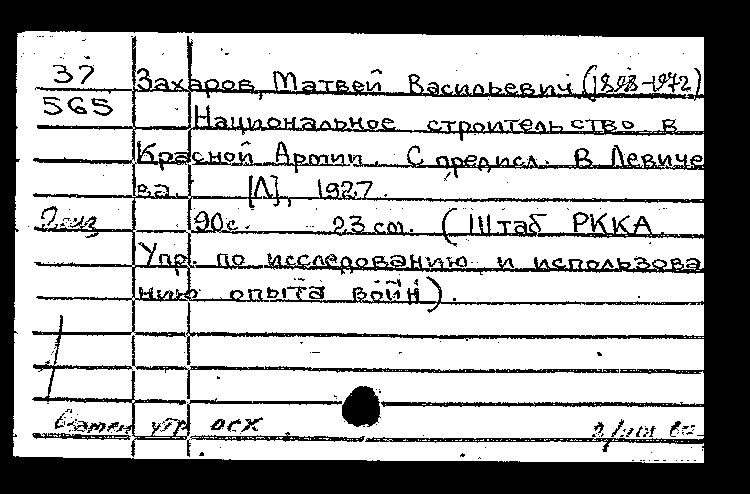 37 Захаров, Матвей Васильевич (1898-1972)
565 Национальное строительство в
Красной Армии. С предисл. В Левиче
ва. [Л], 1927.
90с. 23 см. (Штаб РККА.
Упр. по исследованию и использова
нию опыта войн).
Взамен утр осх